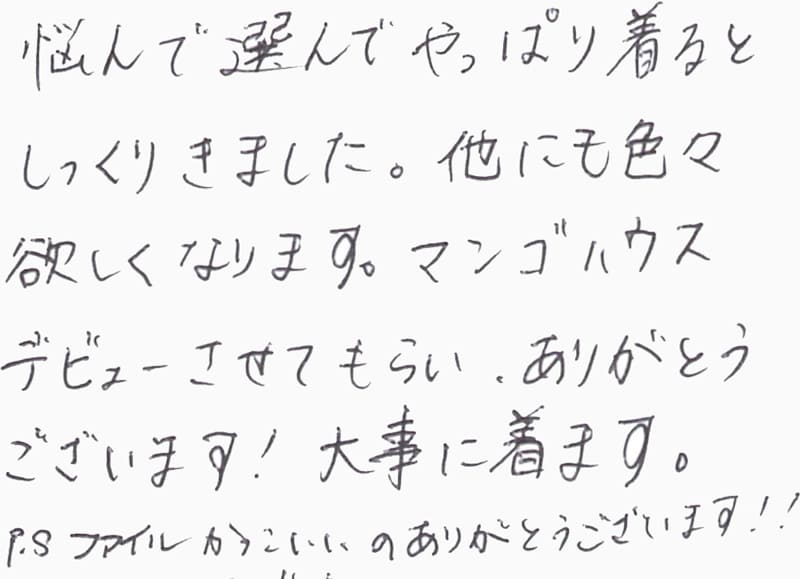 悩んで選んでやっぱり着ると
しっくりきました。他にも色々
欲しくなります。マンゴハウス
デビューさせてもらい、ありがとう
ございます！大事に着ます。
P.S ファイルかっこいいのありがとうございます！！